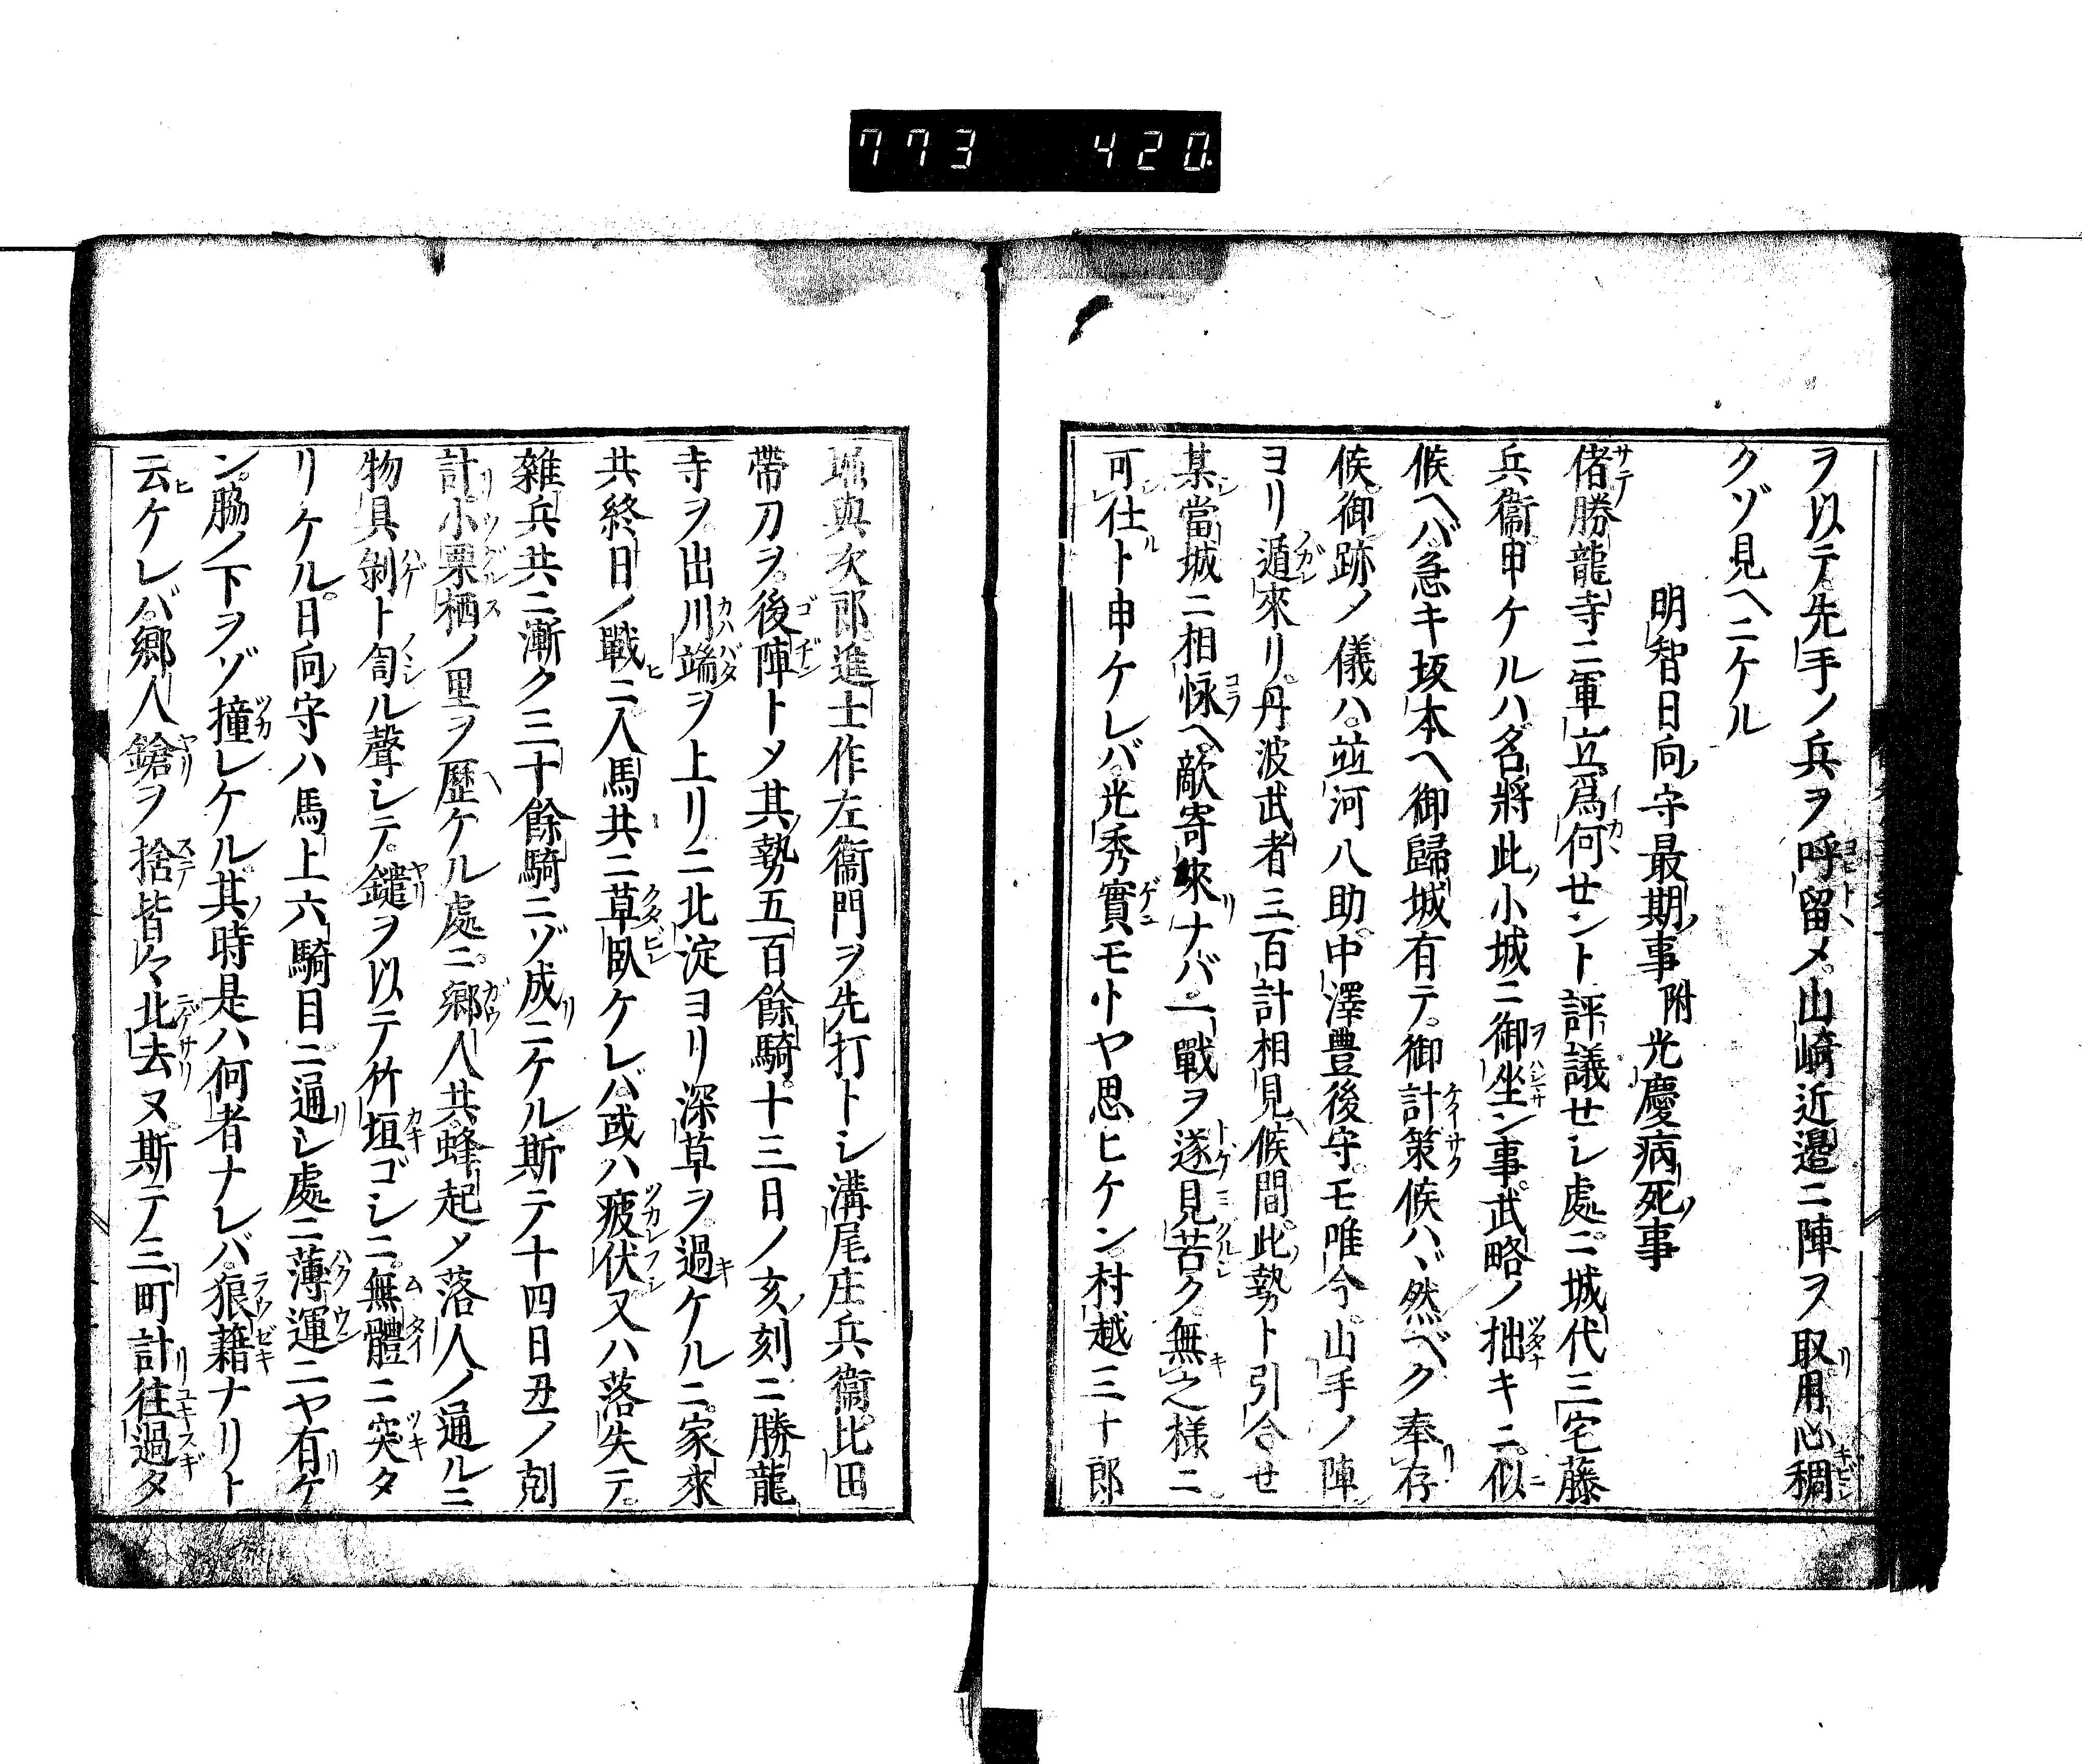 773 420
ヲ以テ先手ノ兵ヲ呼留メ。山崎近邉ニ陣ヲ取用心稠
クゾ見ヘニケル
明智日向守最期事附光慶病死事
偖勝龍寺ニ軍立。爲何セント評議セシ處ニ。城代三宅藤
兵衞申ケルハ。名將此小城ニ御坐ン事。武略ノ拙キニ。似
候ヘバ。急キ坂本ヘ御歸城有テ。御計策候ハヾ然ベク奉存
候。御跡ノ儀ハ。並河八助。中澤豊後守。モ唯今。山手ノ陣
ヨリ遁來リ。丹波武者三百計相見候間。此勢ト引合せ
某當城ニ相怺ヘ。敵寄來ナバ。一戰ヲ遂見苦ク。無之樣ニ
可仕ト申ケレバ。光秀實モトヤ思ヒケン。村越三十郎
堀與次郎。進士作左衞門ヲ。先打トシ溝尾庄兵衞。比田
帶刀ヲ。後陣トメ其勢五百餘騎。十三日ノ亥刻ニ勝龍
寺ヲ。出川端ヲ上リニ北淀ヨリ深草ヲ。過ケルニ。家來
共終日ノ戰ニ。人馬共ニ草臥ケレバ。或ハ疲伏又ハ落失テ。
雜兵共ニ漸ク三十餘騎ニゾ成ニケル斯テ十四日丑ノ剋
計。小栗栖ノ里ヲ歷ケル處ニ。郷人共蜂起メ落人ノ通ルニ
物具剝ト訇ル聲シテ。鑓ヲ以テ竹垣ゴシニ。無體ニ突タ
リケル。日向守ハ馬上六騎目ニ。通シ處ニ薄運ニヤ有ケ
ン。脇ノ下ヲゾ撞レケル。其時是ハ何者ナレバ。狼藉ナリト
云ケレバ。郷人鎗ヲ捨皆々北去ヌ。斯テノ三町計往過タ